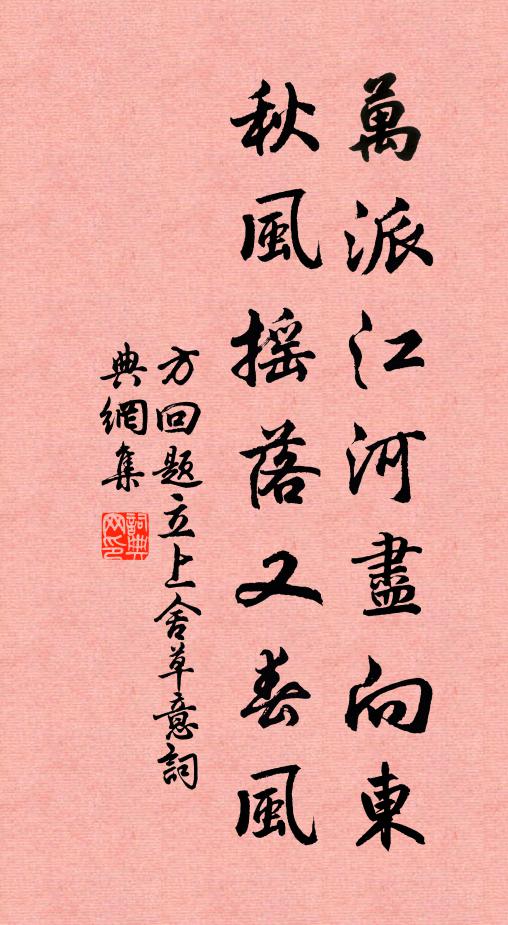 萬派江河盡向東
秋風摇落又春風
方回題立上舍草意詞
典網集
詞典網印